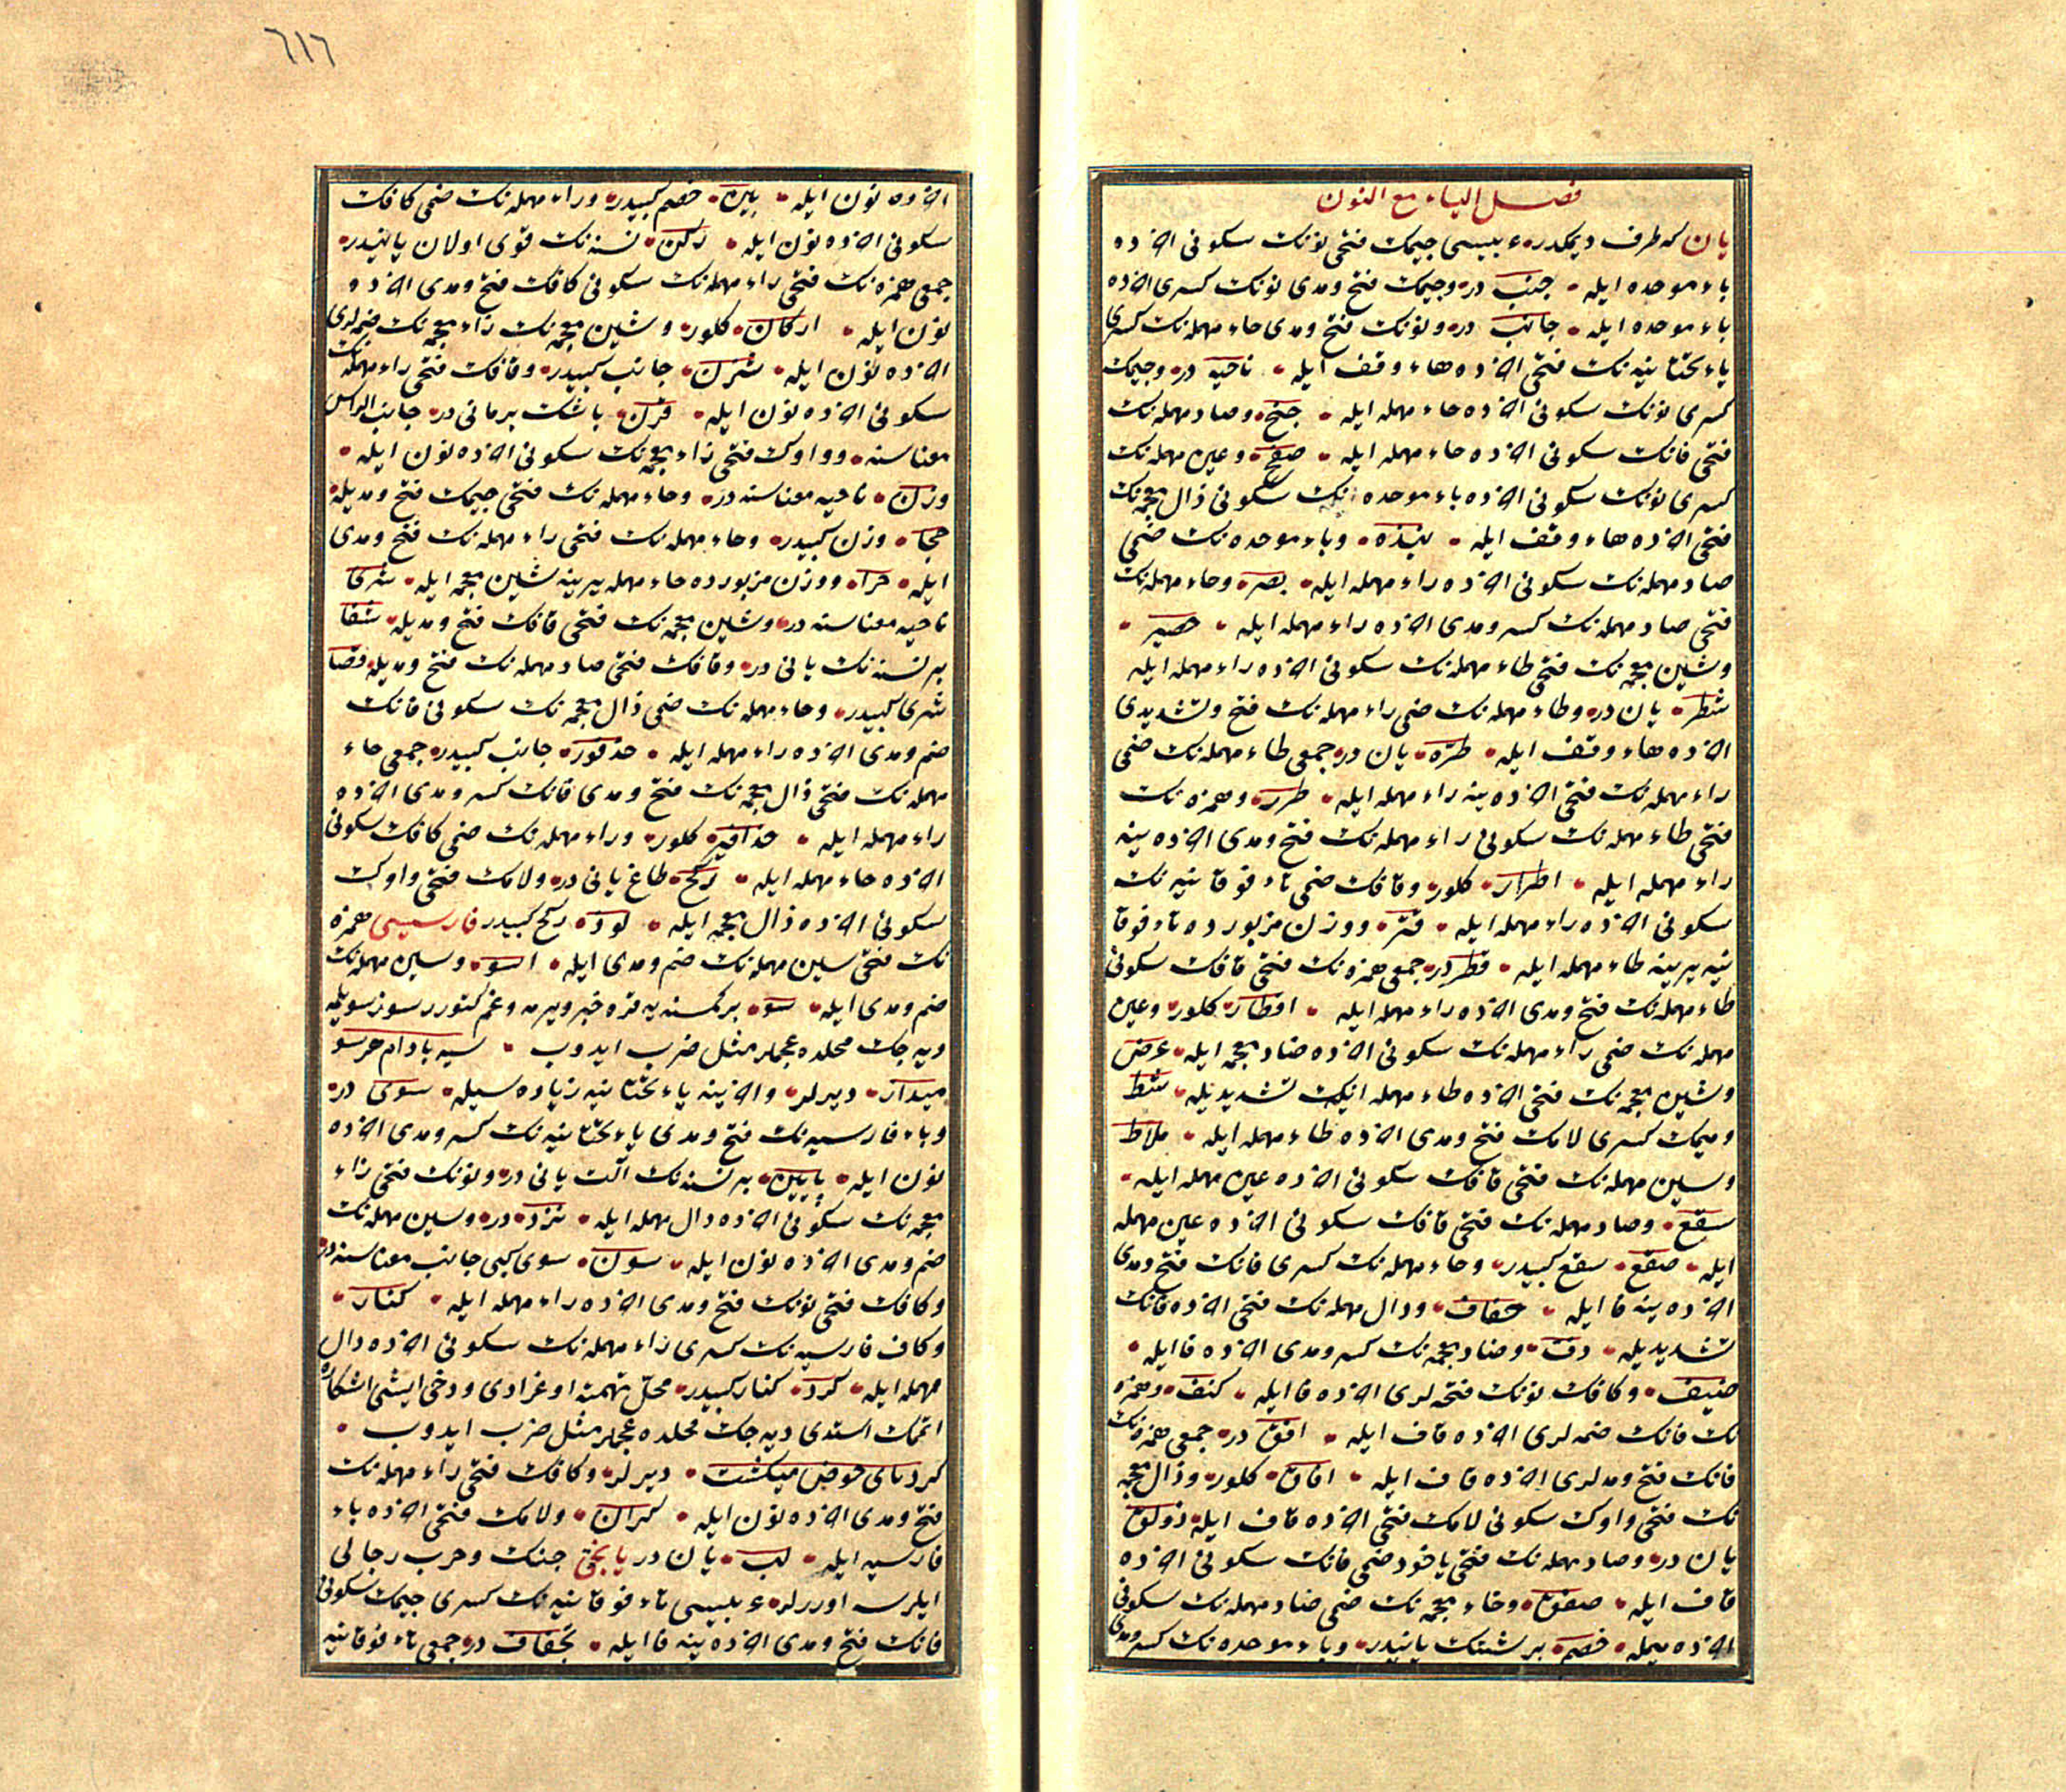 فصل الیاء مع النون
یان که طرف دیمکدر، عربیسی جیمك فتحی نونك سکونی آخرده
باء موحده ایله، جنب در، وجیمك فتح ومدی نونك کسری آخرده
باء موحده ایله، جانب در، ونونك فتح ومدی حاء مهمله نك کسری
یاء تحتانیه نك فتحی آخرده هاء وقف ایله، ناحیه در، وجیمك
کسری نونك سکونی آخرده حاء مهمله ایله، جنح، وصاد مهمله نك
فتحی فانك سکونی آخرده حاء مهمله ایله، صفح، وعین مهمله نك
کسری نونك سکونی آخرده باء موحده نك سکونی ذال معجمه نك
فتحی آخرده هاء وقف ایله، نبذه، وباء موحده نك ضمی
صاد مهمله نك سکونی آخرده راء مهمله ایله، بصر، وحاء مهمله نك
فتحی صاد مهمله نك کسر ومدی آخرده راء مهمله ایله، حصیر،
وشین معجمه نك فتحی طاء مهمله نك سکونی آخرده راء مهمله ایله
شطر، یان در، وطاء مهمله نك ضمی راء مهمله نك فتح وتشدیدی
آخرده هاء وقف ایله، طره، یان در، جمعی طاء مهمله نك ضمی
راء مهمله نك فتحی آخرده ینه راء مهمله ایله، طرر، وهمزه نك
فتحی طاء مهمله نك سکونی راء مهمله نك فتح ومدی آخرده ینه
راء مهمله ایله، اطرار، کلور، وقافك ضمی تاء فوقانیه نك
سکونی آخرده راء مهمله ایله، قتر، ووزن مزبورده تاء فوقا
نیه یرینه طاء مهمله ایله، قطر در، جمعی همزه نك فتحی قافك سکونی
طاء مهمله نك فتح ومدی آخرده راء مهمله ایله، اقطار، کلور، وعین
مهمله نك ضمی راء مهمله نك سکونی آخرده ضاد معجمه ایله، عرض
وشین معجمه نك فتحی آخرده طاء مهمله نك تشدیدیله، شط
ومیمك کسری لامك فتح ومدی آخرده طاء مهمله ایله، ملاط
وسین مهمله نك فتحی قافك سکونی آخرده عین مهمله ایله،
سقع، وصاد مهمله نك فتحی قافك سکونی آخرده عین مهمله
ایله، صقع، سقع کبیدر، وحاء مهمله نك کسری فانك فتح ومدی
آخرده ینه فا ایله، حفاف، ودال مهمله نك فتحی آخرده فانك
تشدیدیله، دف، وضاد معجمه نك کسر ومدی آخرده فا ایله،
ضیف، وکافك نونك فتحه لری آخرده فا ایله، کنف، وهمزه
نك فانك ضمه لری آخرده قاف ایله، افق در، جمعی همزه نك
فانك فتح ومدلری آخرده قاف ایله، افاق، کلور، وذال معجمه
نك فتحی واوك سکونی لامك فتحی آخرده قاف ایله، ذولق
یان در، وصاد مهمله نك فتحی یاخود ضمی فانك سکونی آخرده
قاف ایله، صفق، وخاء معجمه نك ضمی صاد مهمله نك سکونی
آخرده میمله، خصم، بر شینك یانیدر، وباء موحده نك کسر ومدی
٦١٦
آخرده نون ایله، بین، خصم کبیدر، وراء مهمله نك ضمی کافك
سکونی آخرده نون ایله، رکن، نسنه نك قوی اولان یانیدر،
جمعی همزه نك فتحی راء مهمله نك سکونی کافك فتح ومدی آخرده
نون ایله، ارکان، کلور، وشین معجمه نك زاء معجمه نك ضمه لری
آخرده نون ایله، شزن، جانب کبیدر، وقافك فتحی راء مهمله نك
سکونی آخرده نون ایله، قرن، باشك بر یانی در، جانب الراس
معناسنه، وواوك فتحی زاء معجمه نك سکونی آخرده نون ایله،
وزن، ناحیه معناسنه در، وحاء مهمله نك فتحی جیمك فتح ومدیله،
حجا، وزن کبیدر، وحاء مهمله نك فتحی راء مهمله نك فتح ومدی
ایله، حرا، ووزن مزبورده حاء مهمله یرینه شین معجمه ایله، شرا
ناحیه معناسنه در، وشین معجمه نك فتحی قافك فتح ومدیله، شقا
بر نسنه نك یانی در، وقافك فتحی صاد مهمله نك فتح ومدیله، قصا
شری کبیدر، وحاء مهمله نك ضمی ذال معجمه نك سکونی فانك
ضم ومدی آخرده راء مهمله ایله، حذفور، جانب کبیدر، جمعی حاء
مهمله نك فتحی ذال معجمه نك فتح ومدی فانك کسر ومدی آخرده
راء مهمله ایله، حذافیر، کلور، وراء مهمله نك ضمی کافك سکونی
آخرده حاء مهمله ایله، رکح، طاغ یانی در، ولامك فتحی واوك
سکونی آخرده ذال معجمه ایله، لوذ، رکح کبیدر فارسیسی همزه
نك فتحی سین مهمله نك ضم ومدی ایله، اسو، وسین مهمله نك
ضم ومدی ایله، سو، بر کمسنه یه قره خبر ویرمه وغم کتورر سوز سویله
دیه جك محلده عجملر مثل ضرب ایدوب، سیه بادام هر سو
میدار، دیرلر، وآخرینه یاء تحتانیه زیاده سیله، سوی در،
وباء فارسیه نك فتح ومدی یاء تحتانیه نك کسر ومدی آخرده
نون ایله، پایین، بر نسنه نك آلت یانی در، ونونك فتحی زاء
معجمه نك سکونی آخرده دال مهمله ایله، نزد، در، وسین مهمله نك
ضم ومدی آخرده نون ایله، سون، سوی کبی جانب معناسنه در،
وکافك فتحی نونك فتح ومدی آخرده راء مهمله ایله، کنار،
وکاف فارسیه نك کسری راء مهمله نك سکونی آخرده دال
مهمله ایله، کرد، کنار کبیدر، محل تهمته اوغرادی ودخی ایشی اشکاره
اتمك استدی دیه جك محلده عجملر مثل ضرب ایدوب،
کرد پای حوض میکشت، دیرلر، وکافك فتحی راء مهمله نك
فتح ومدی آخرده نون ایله، کران، ولامك فتحی آخرده باء
فارسیه ایله، لب، یان در یانجی جنك وحرب رجالی
ایلرسه اورر لر، عربیسی تاء فوقانیه نك کسری جیمك سکونی
فانك فتح ومدی آخرده ینه فا ایله، تجفاف در، جمعی تاء فوقانیه